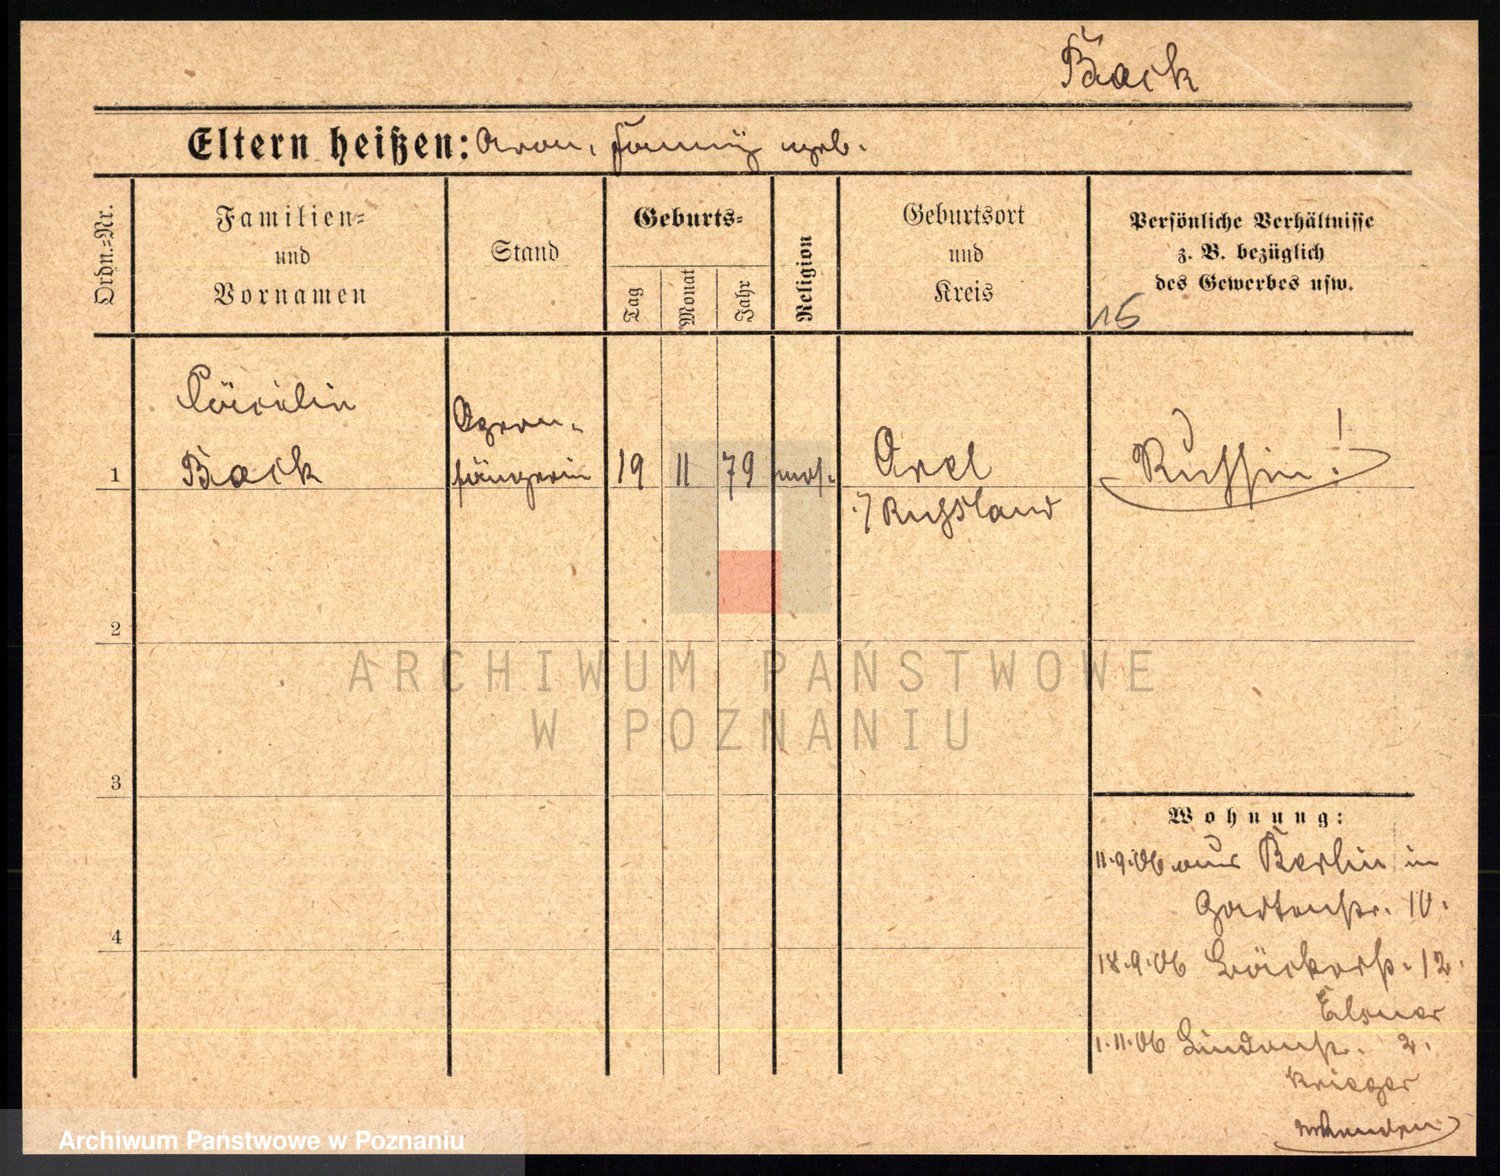 Back
Eltern heißen: Aron, Fanny geb.
Ordn.=Nr.
Familien=
und
Vornamen
Stand
Geburts=
Tag
Monat
Jahr
Religion
Geburtsort
und
Kreis
Persönliche Verhältnisse
z. B. bezüglich
des Gewerbes usw.
15
1
Back
19 11 79 mos.
Orel
Russland
Russin!
2
3
4
Wohnung:
11.9.06 aus Berlin in
Gartenstr. 10.
18.9.06 Bäckerstr. 12.
Elsner
1.11.06 Lindenstr. 2.
Krieger
ARCHIWUM PAŃSTWOWE
W POZNANIU
Archiwum Państwowe w Poznaniu